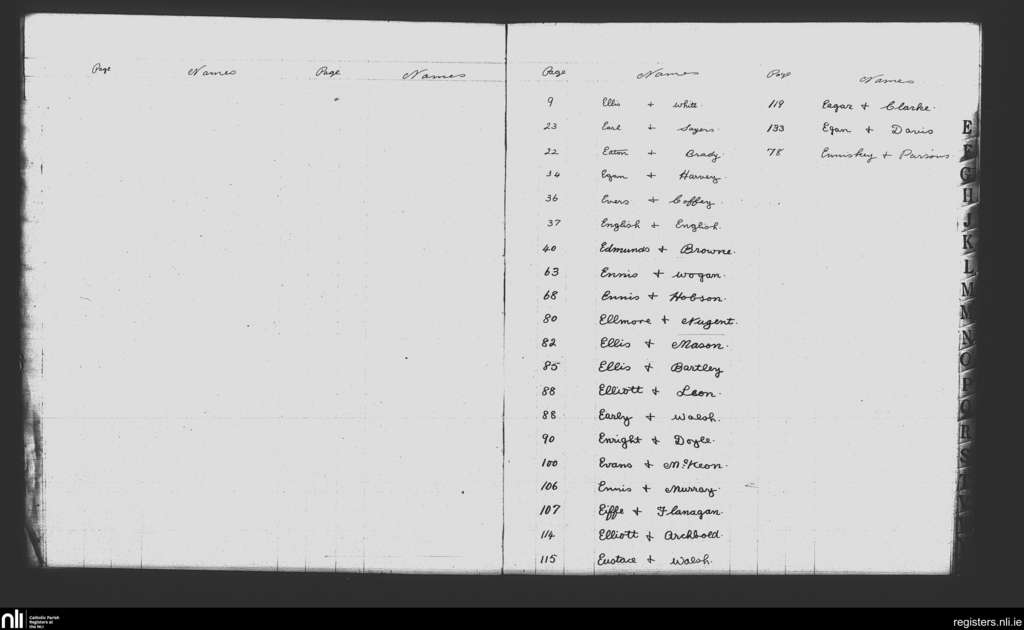 Page Names Page Names
Page Names Page Names
9 Ellis + White.
23 Earl + Sayers
22 Eaton + Brady.
34 Egan + Harvey.
36 Evers + Coffey
37 English + English.
40 Edmunds + Browne.
63 Ennis + Wogan.
68 Ennis + Hobson.
80 Ellmore + Nugent.
82 Ellis + Mason.
85 Ellis + Bartley
88 Elliott + Leon.
88 Early + Walsh.
90 Enright + Doyle.
100 Evans + McKeon.
106 Ennis + Murray.
107 Eiffe + Flanagan.
114 Elliott + Archbold.
115 Eustace + Walsh.
119 Eagar + Clarke.
133 Egan + Davis
78 Enniskey + Parsons
E
F
G
H
J
K
L
M
M
N
O
P
Q
R
S
T
V
nli
Catholic Parish
Registers at
the NLI
registers.nli.ie